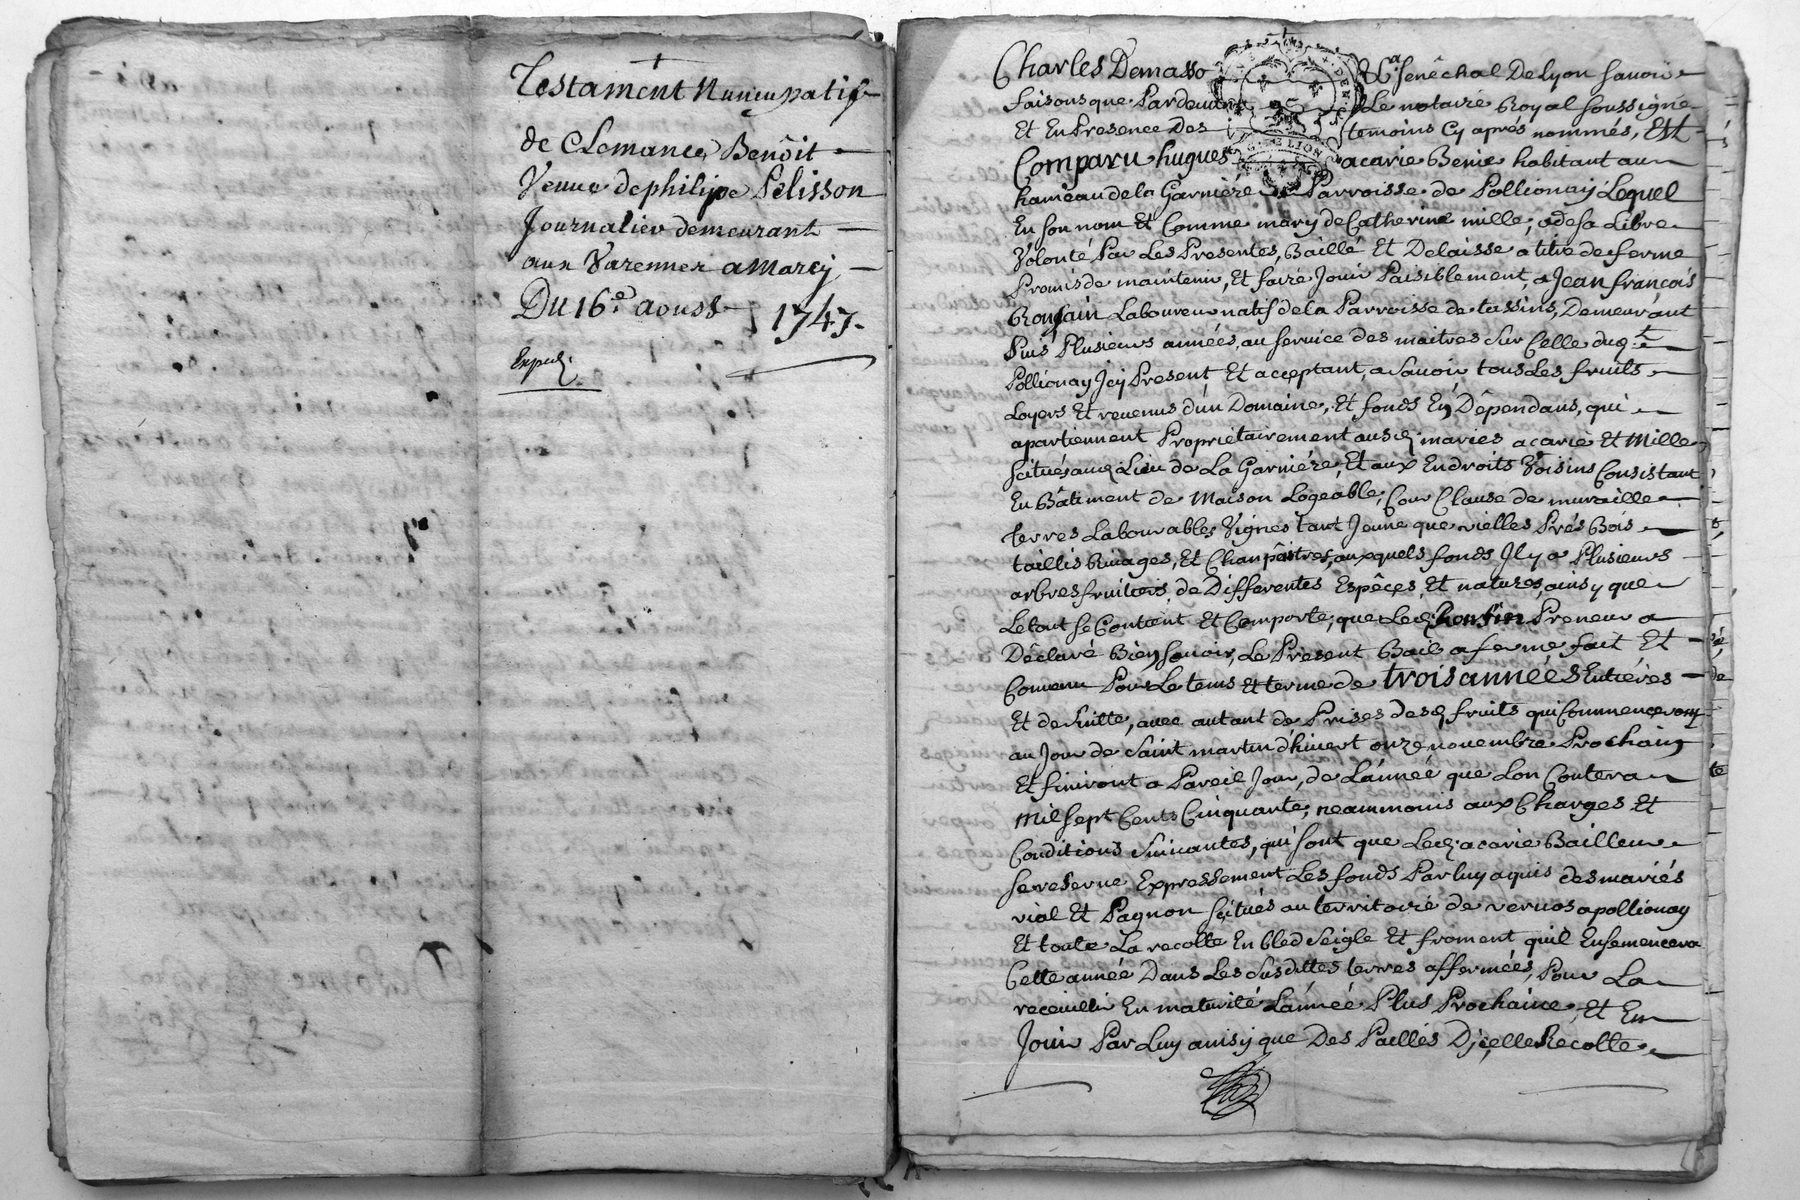 Testament Nuncupatif
de Clemance Benôit
Veuve de philipe Pelisson
Journalier demeurant
aux Varennes a Marcy
Du 16e aoust 1747.
Exped.
Charles Demasso Sénéchal De Lyon savoir
faisons que Pardevant Le notaire Royal soussigné
Et En Presence Des temoins Cy aprés nommés, Est
Comparu hugues acarie Benie habitant au
hameau de la Garniére Parroisse de Pollionay Lequel
En son nom Et Comme mary de Catherine mille, a de sa Libre
Volonté Par Les Presentes, Baillé Et Delaisse a titre de ferme
Promis de maintenir, Et faire Jouir Paisiblement, a Jean françois
Laboureur natif de la Parroisse de tassins, Demeurant
Puis Plusieurs années, au service des maitres sur Celle dud.t
Pollionay Jcy Present Et acceptant, a Savoir tous Les fruits
Loyers Et revenus d'un Domaine, Et fonds En Dépendans, qui
apartiennent Proprietairement ausd. mariés acarie Et Mille,
scitués aud. Lieu de La Garniére, Et aux Endroits Voisins Consistant
En Bâtiment de Maison Logeable, Cour Clause de muraille
terres Labourables Vignes tant Jeune que vielles Prés Bois
taillis Et Champêtres, auxquels fonds Jl y a Plusieurs
arbres fruitiers, de Differentes Espêces, Et natures, ainsy que
Le tout se Contient Et Comporte, que Led. Preneur a
Déclaré Bien savoir, Le Present Bail a ferme fait Et
Convenu Pour Le tems Et terme de trois années Entiéres
Et de suitte, avec autant de Prises desd. fruits qui Commenceront
au Jour de Saint martin d'hivert onze novembre Prochain
Et finiront a Pareil Jour, de L'année que Lon Contera
mil sept Cents Cinquante, neammoins aux Charges Et
Conditions Suivantes, qui sont que Led. acarie Bailleur
se reserve Expressement Les fonds Par luy aquis des mariés
vial Et Pagnon scitués au territoire de vernos a pollionay
Et toute La recolte En bled Seigle Et froment qu'il Ensemencera
Cette année Dans Les Susdittes terres affermées, Pour La
receuillir En maturité L'année Plus Prochaine, Et En
Jouir Par Luy ainsy que Des Pailles D'jcelle Recolte